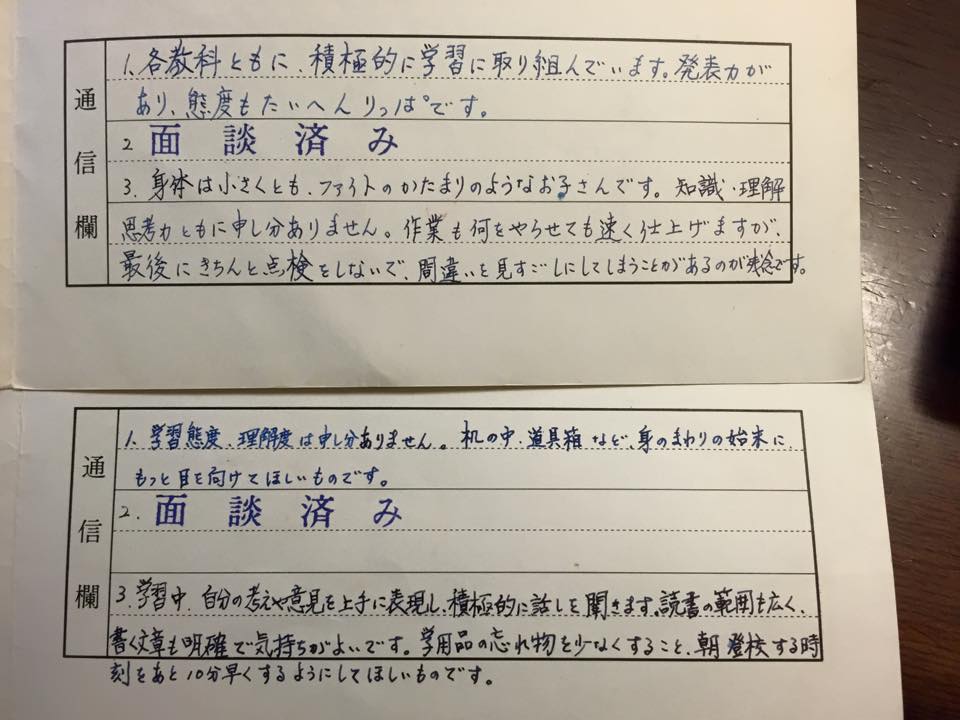 通信欄
1. 各教科ともに、積極的に学習に取り組んでいます。発表力が
あり、態度もたいへんりっぱです。
2 面談済み
3. 身体は小さくとも、ファイトのかたまりのようなお子さんです。知識・理解
思考力ともに申し分ありません。作業も何をやらせても速く仕上げますが、
最後にきちんと点検をしないで、間違いを見すごしにしてしまうことがあるのが残念です。
通信欄
1. 学習態度、理解度は申し分ありません。机の中、道具箱など、身のまわりの始末に
もっと目を向けてほしいものです。
2. 面談済み
3. 学習中、自分の考えや意見を上手に表現し、積極的に話しを聞きます。読書の範囲も広く、
書く文章も明確で気持ちがよいです。学用品の忘れ物を少なくすること、朝登校する時
刻をあと10分早くするようにしてほしいものです。